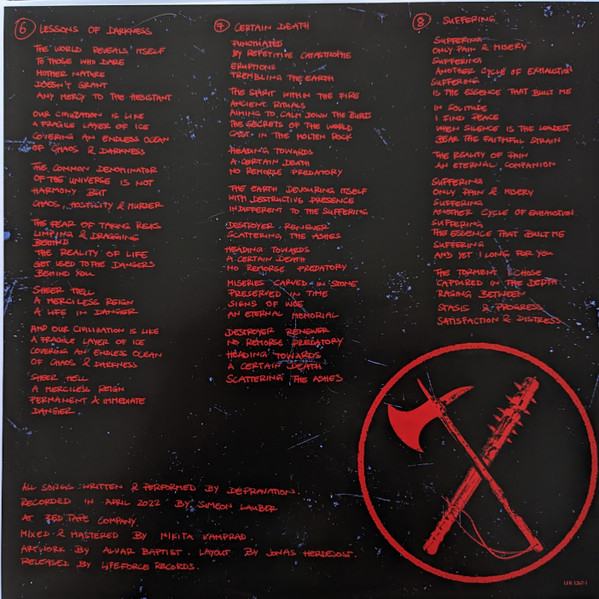 6 LESSONS OF DARKNESS
THE WORLD REVEALS ITSELF
TO THOSE WHO DARE
MOTHER NATURE
DOESN'T GRANT
ANY MERCY TO THE HESISTANT
OUR CIVILISATION IS LIKE
A FRAGILE LAYER OF ICE
COVERING AN ENDLESS OCEAN
OF CHAOS & DARKNESS
THE COMMON DENOMINATOR
OF THE UNIVERSE IS NOT
HARMONY BUT
CHAOS, HOSTILITY & MURDER
THE FEAR OF TAKING RISKS
LIMPING & DRAGGING
BEHIND
THE REALITY OF LIFE
GET USED TO THE DANGERS
BEHIND YOU
SHEER HELL
A MERCILESS REIGN
A LIFE IN DANGER
AND OUR CIVILISATION IS LIKE
A FRAGILE LAYER OF ICE
COVERING AN ENDLESS OCEAN
OF CHAOS & DARKNESS
SHEER HELL
A MERCILESS REIGN
PERMANENT & IMMEDIATE
DANGER.
7 CERTAIN DEATH
FUMIGATED
BY REPETITIVE CATASTROPHE
ERUPTIONS
TREMBLING THE EARTH
THE SPIRIT WITHIN THE FIRE
ANCIENT RITUALS
AIMING TO CALM DOWN THE BURIED
THE SECRETS OF THE WORLD
CAST IN THE MOLTEN ROCK
HEADING TOWARDS
A CERTAIN DEATH
NO REMORSE PREDATORY
THE EARTH DEVOURING ITSELF
WITH DESTRUCTIVE PRESENCE
INDIFFERENT TO THE SUFFERING
DESTROYER, RENEWER
SCATTERING THE ASHES
HEADING TOWARDS
A CERTAIN DEATH
NO REMORSE PREDATORY
MISERIES CARVED IN STONE
PRESERVED IN TIME
SIGNS OF WOE
AN ETERNAL MEMORIAL
DESTROYER RENEWER
NO REMORSE PREDATORY
HEADING TOWARDS
A CERTAIN DEATH
SCATTERING THE ASHES
8 SUFFERING
SUFFERING
ONLY PAIN & MISERY
SUFFERING
ANOTHER CYCLE OF EXHAUSTION
SUFFERING
IS THE ESSENCE THAT BUILT ME
IN SOLITUDE
I FIND PEACE
WHEN SILENCE IS THE LOUDEST
BEAR THE FAITHFUL STRAIN
THE REALITY OF PAIN
AN ETERNAL COMPANION
SUFFERING
ONLY PAIN & MISERY
SUFFERING
ANOTHER CYCLE OF EXHAUSTION
SUFFERING
THE ESSENCE THAT BUILT ME
SUFFERING
AND YET I LONG FOR YOU
THE TORMENT I CHOSE
CAPTURED IN THE DEPTH
RAGING BETWEEN
STASIS & PROGRESS
SATISFACTION & DISTRESS
ALL SONGS WRITTEN & PERFORMED BY DEPRAVATION.
RECORDED IN APRIL 2022 BY SIMEON LAUBER
AT RED TAPE COMPANY.
MIXED & MASTERED BY NIKITA KAMPRAD
ARTWORK BY ALVAR BAPTIST. LAYOUT BY JONAS HERDEJOST.
RELEASED BY LIFEFORCE RECORDS.